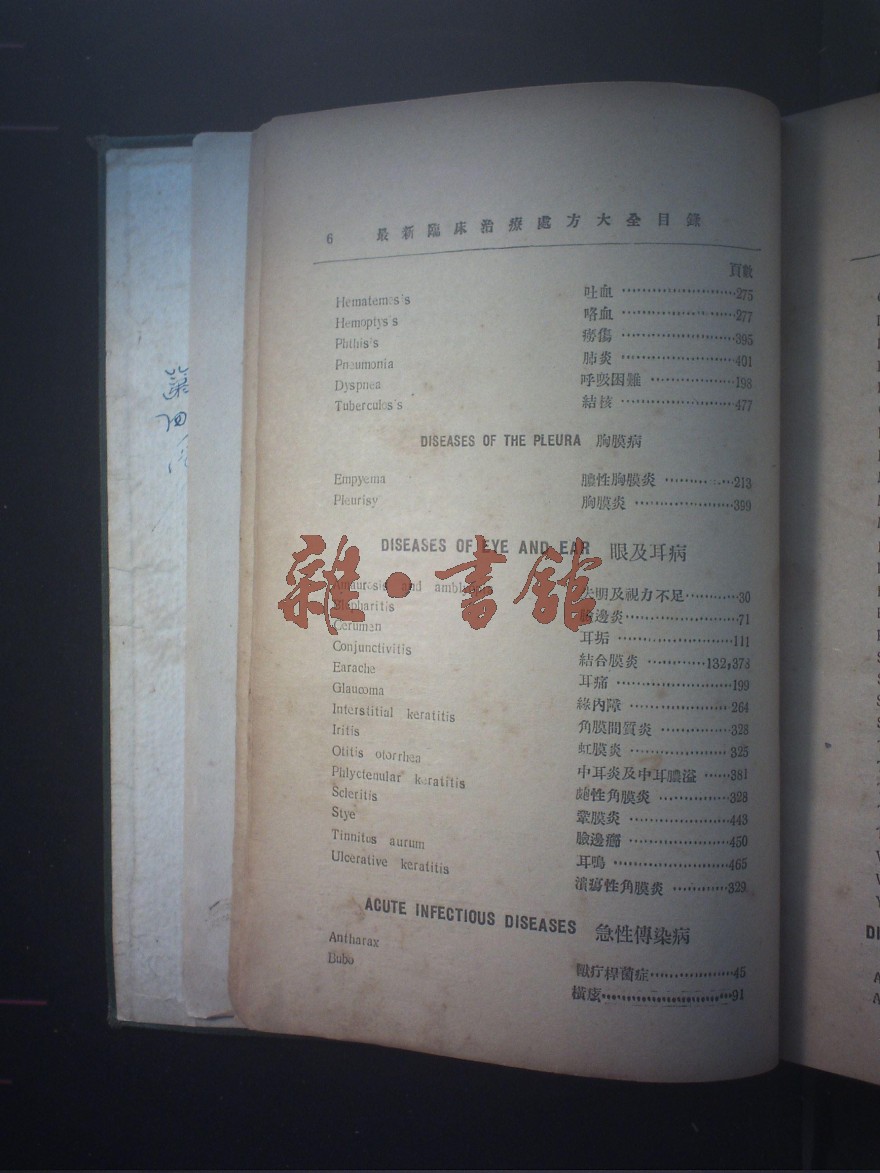 6 最新臨床治療處方大全目錄
頁數
Hematemes's 吐血 275
Hemoptys's 喀血 277
Phthis's 癆傷 395
Pneumonia 肺炎 401
Dyspnea 呼吸困難 198
Tuberculos's 結核 477
DISEASES OF THE PLEURA 胸膜病
Empyema 膿性胸膜炎 213
Pleurisy 胸膜炎 399
DISEASES OF EYE AND EAR 眼及耳病
雜·書館
and 失明及視力不足 30
Blepharitis 瞼邊炎 71
Cerumen 耳垢 111
Conjunctivitis 結合膜炎 132,378
Earache 耳痛 199
Glaucoma 綠內障 264
Interstitial keratitis 角膜間質炎 328
Iritis 虹膜炎 325
Otitis otorrhea 中耳炎及中耳膿溢 381
Phlyctenular keratitis 皰性角膜炎 328
Scleritis 鞏膜炎 443
Stye 臉邊癤 450
Tinnitus aurum 耳鳴 465
Ulcerative keratitis 潰瘍性角膜炎 329
ACUTE INFECTIOUS DISEASES 急性傳染病
Antharax 桿菌症 45
Bubo 橫痃 91